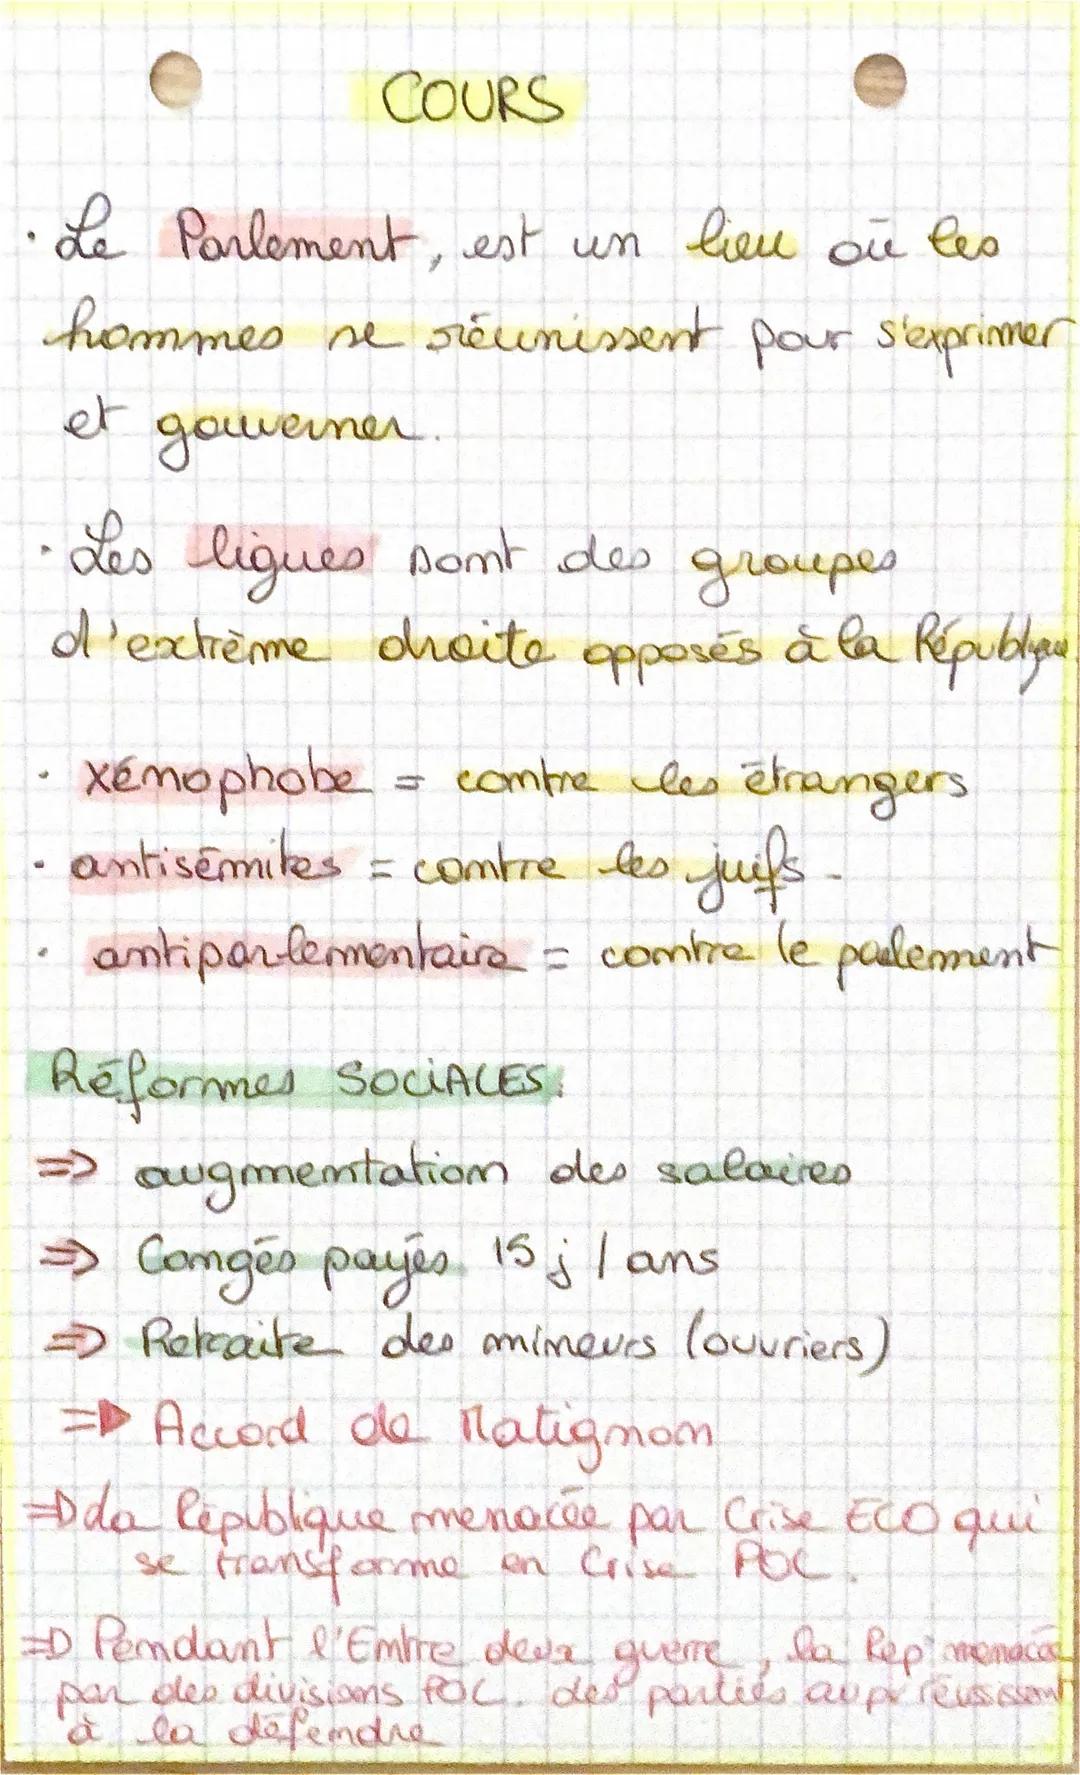 COURS
· Le Parlement, est un lieu où les
hommes se réunissent pour s'exprimer
et gouverner.
· Les ligues sont des groupes
d'extrème droite opposés à la République
· xénophobe = contre les étrangers
· antisémites = contre les juifs.
· antiparlementaire = contre le palement
Réformes SOCIALES:
=> augmentation des salaires
=> Congés payés 15 j / ans
=> Retraite des mineurs (ouvriers)
=> Accord de Matignon
=> La République menacée par Crise ECO qui
se transforme en Crise POL.
=> Pendant l'Entre deux guerre, la Rep menacée
par des divisions POL. des parties réussissent
à la défendre